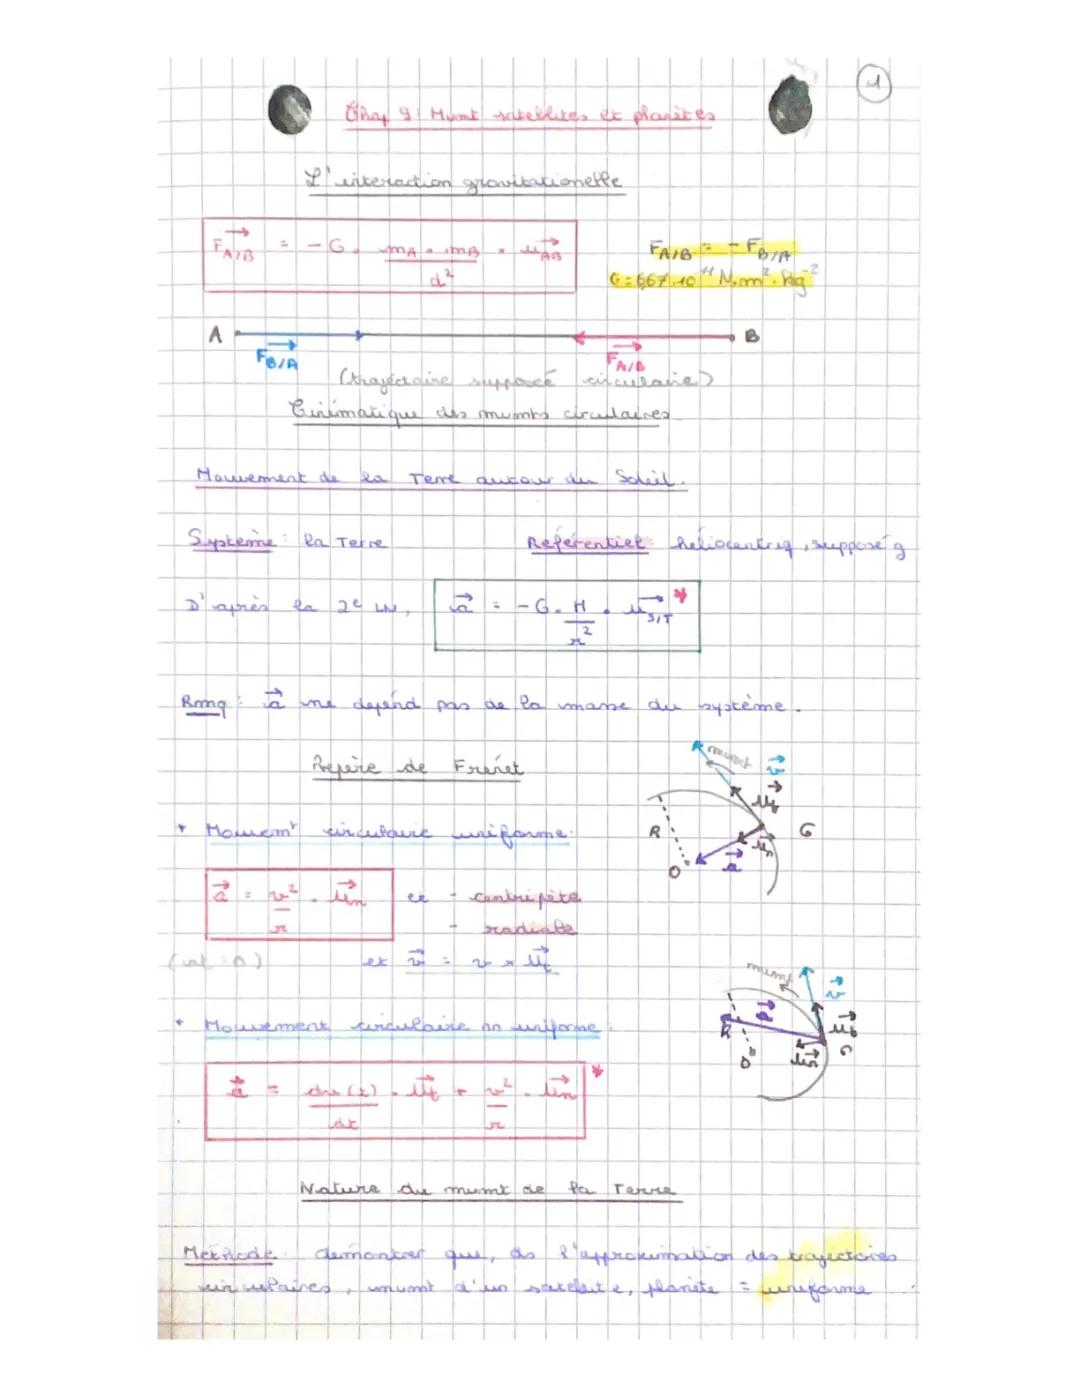 1
Chap 9 : Mvmt satellites et planètes
L'interaction gravitationelle
F_A/B = - G . m_A . m_B / d² . u_AB
F_A/B = - F_B/A
G = 6,67.10^-11 N.m².kg^-2
A B
F_B/A F_A/B
(trajectoire supposé circulaire)
Cinématique des mvmts circulaires
Mouvement de la Terre autour du Soleil.
Système : la Terre Référentiel héliocentriq, supposé g
D'après la 2e LN, a = - G . M / r² . u_S/T *
Rmq : a ne dépend pas de la masse du système.
Repère de Frenet
+ Mouvemt circulaire uniforme.
a = v² / r . un et - centripète
- radiale
et v = v x ut
mvmt v ut R G un O a
+ Mouvement circulaire nn uniforme.
a = dv(t) / dt . ut + v² / r . un *
mvmt v ut R a G un O
Nature du mvmt de la Terre
Méthode démontrer que, ds l'approximation des trajectoires
circulaires, mvmt d'un satellite, planète = uniforme